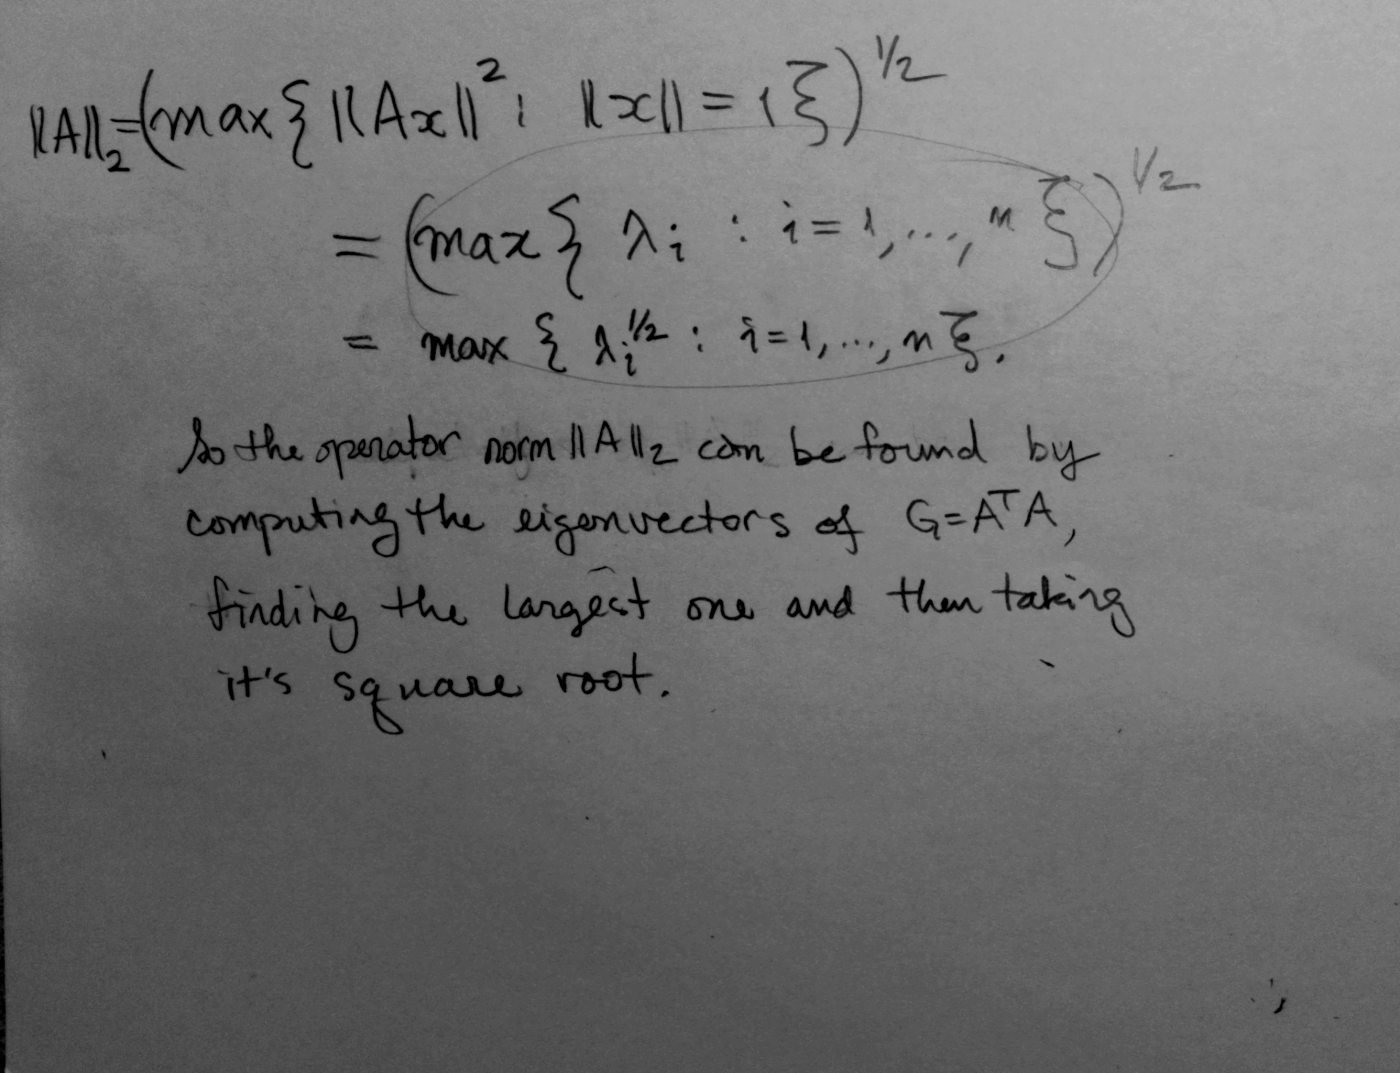 ||A||₂=(max{ ||Ax||²: ||x|| = 1})^1/2
= (max{ λᵢ : i=1,...,n })^1/2
= max { λᵢ^1/2 : i=1,...,n }.
So the operator norm ||A||₂ can be found by
computing the eigenvectors of G=AᵀA,
finding the largest one and then taking
it's square root.